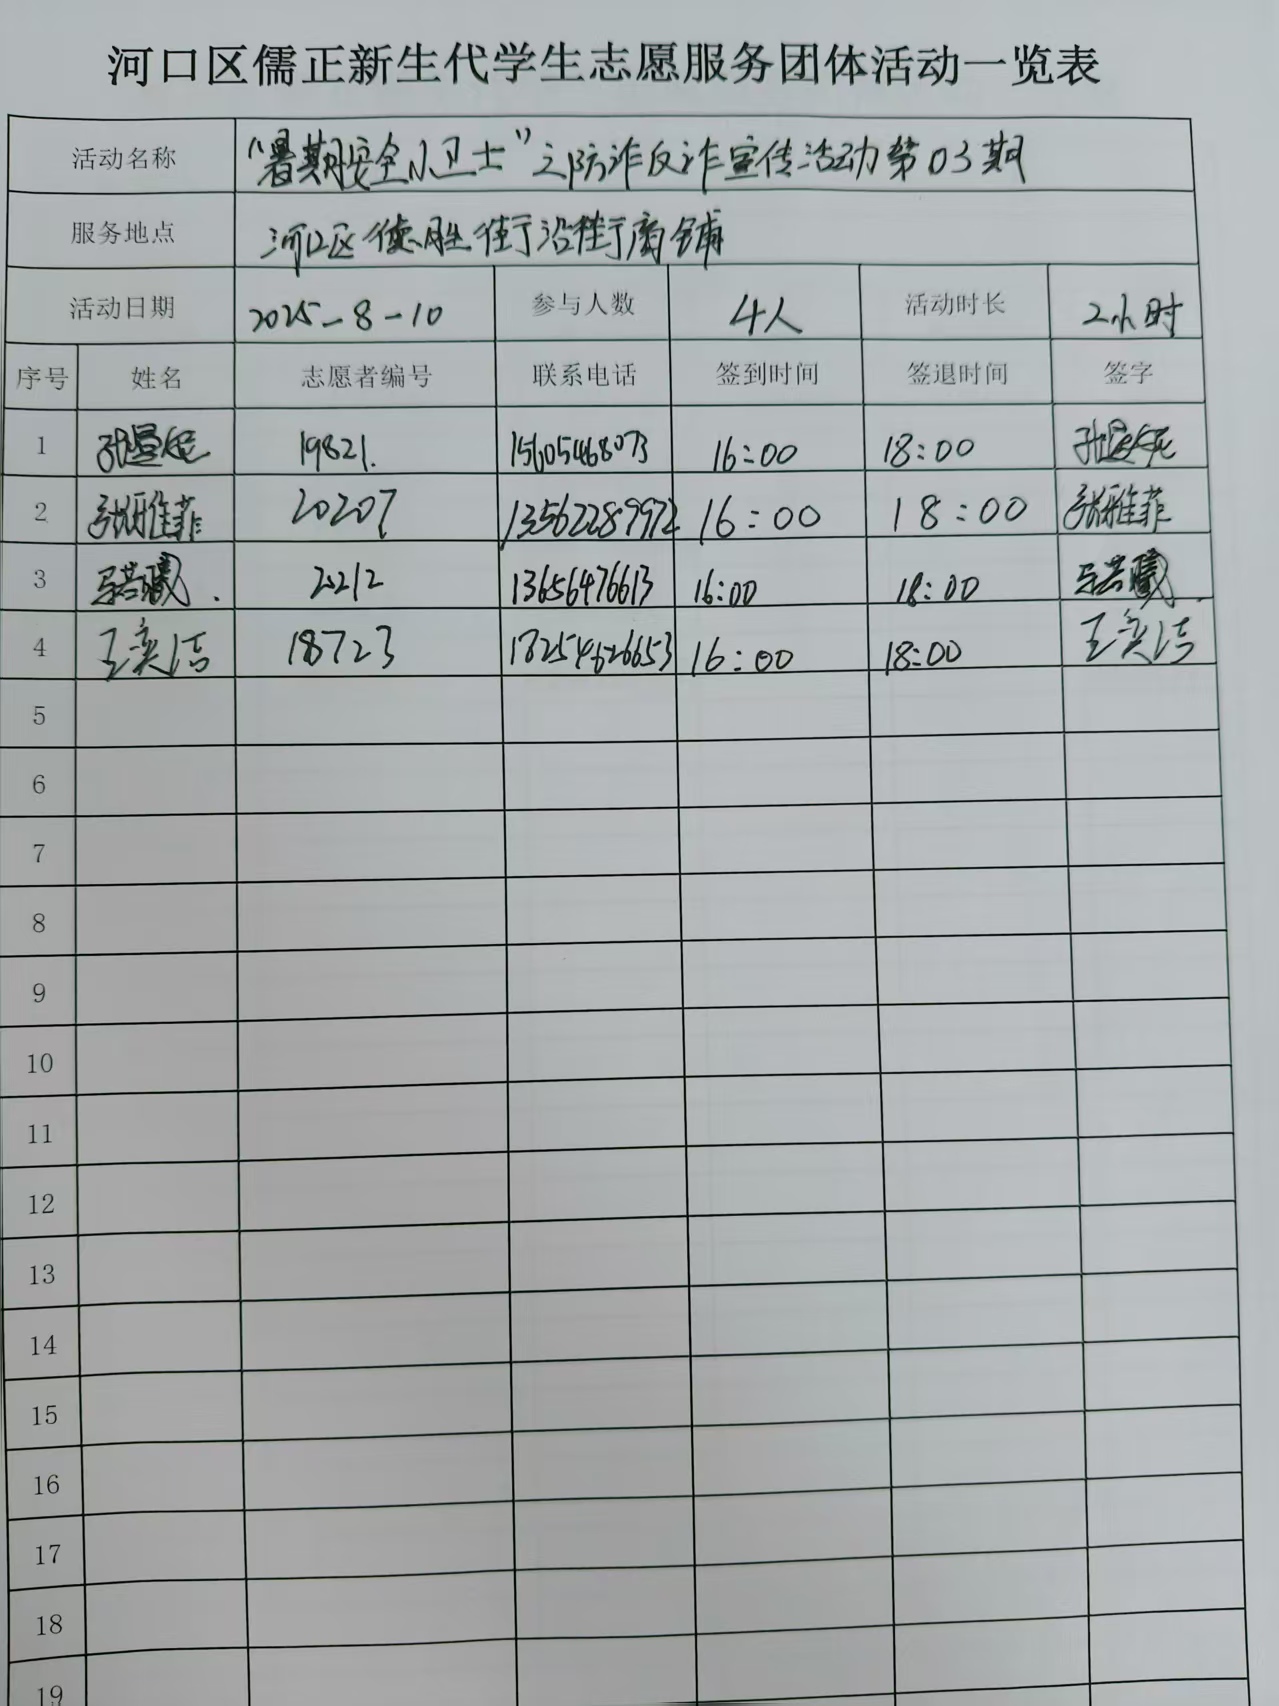 河口区儒正新生代学生志愿服务团体活动一览表
活动名称 “暑期安全小卫士”之防诈反诈宣传活动第03期
服务地点 河口区德胜街沿街商铺
活动日期 2025-8-10 参与人数 4人 活动时长 2小时
序号 姓名 志愿者编号 联系电话 签到时间 签退时间 签字
1 19821. 15605468073 16:00 18:00
2 张雅菲 20207 13562289972 16:00 18:00 张雅菲
3 2212 13656476613 16:00 18:00
4 王奕洁 18723 18254626653 16:00 18:00 王奕洁
5
6
7
8
9
10
11
12
13
14
15
16
17
18
19